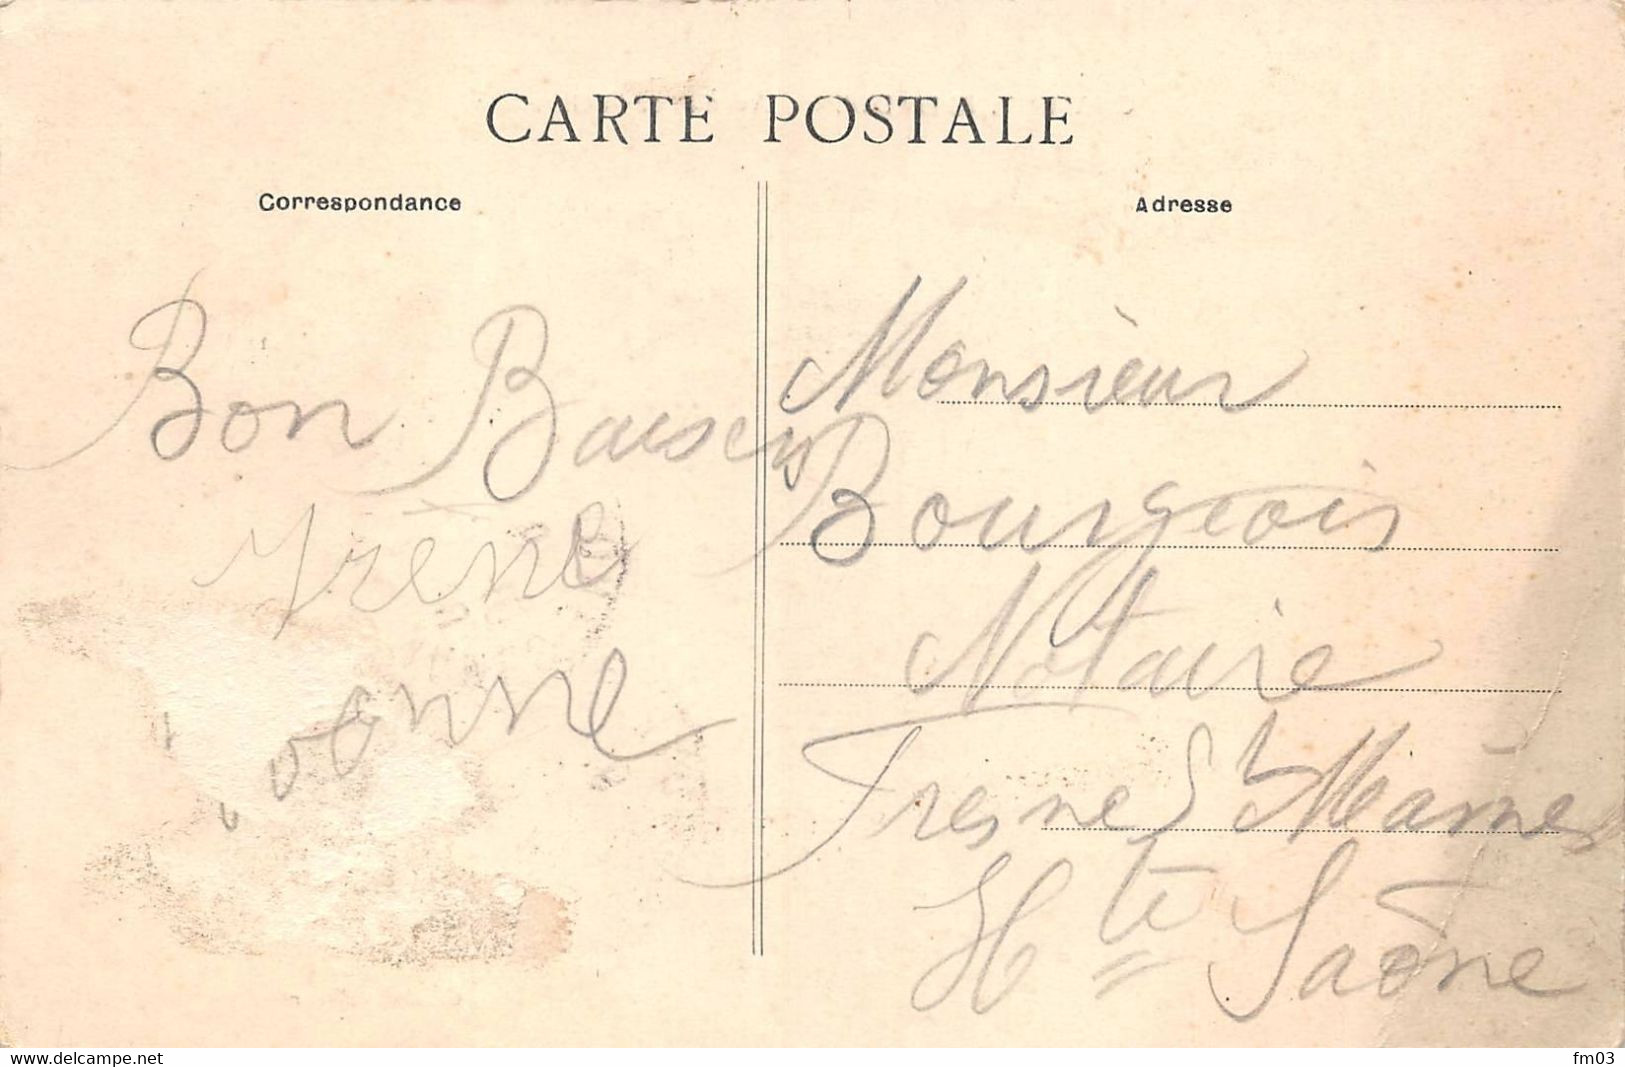 CARTE POSTALE
Correspondance
Bon Baisers
Yrène
Adresse
Monsieur
Bourgeois
Notaire
Fresne St Mamès
Hte Saône
www.delcampe.net
fm03